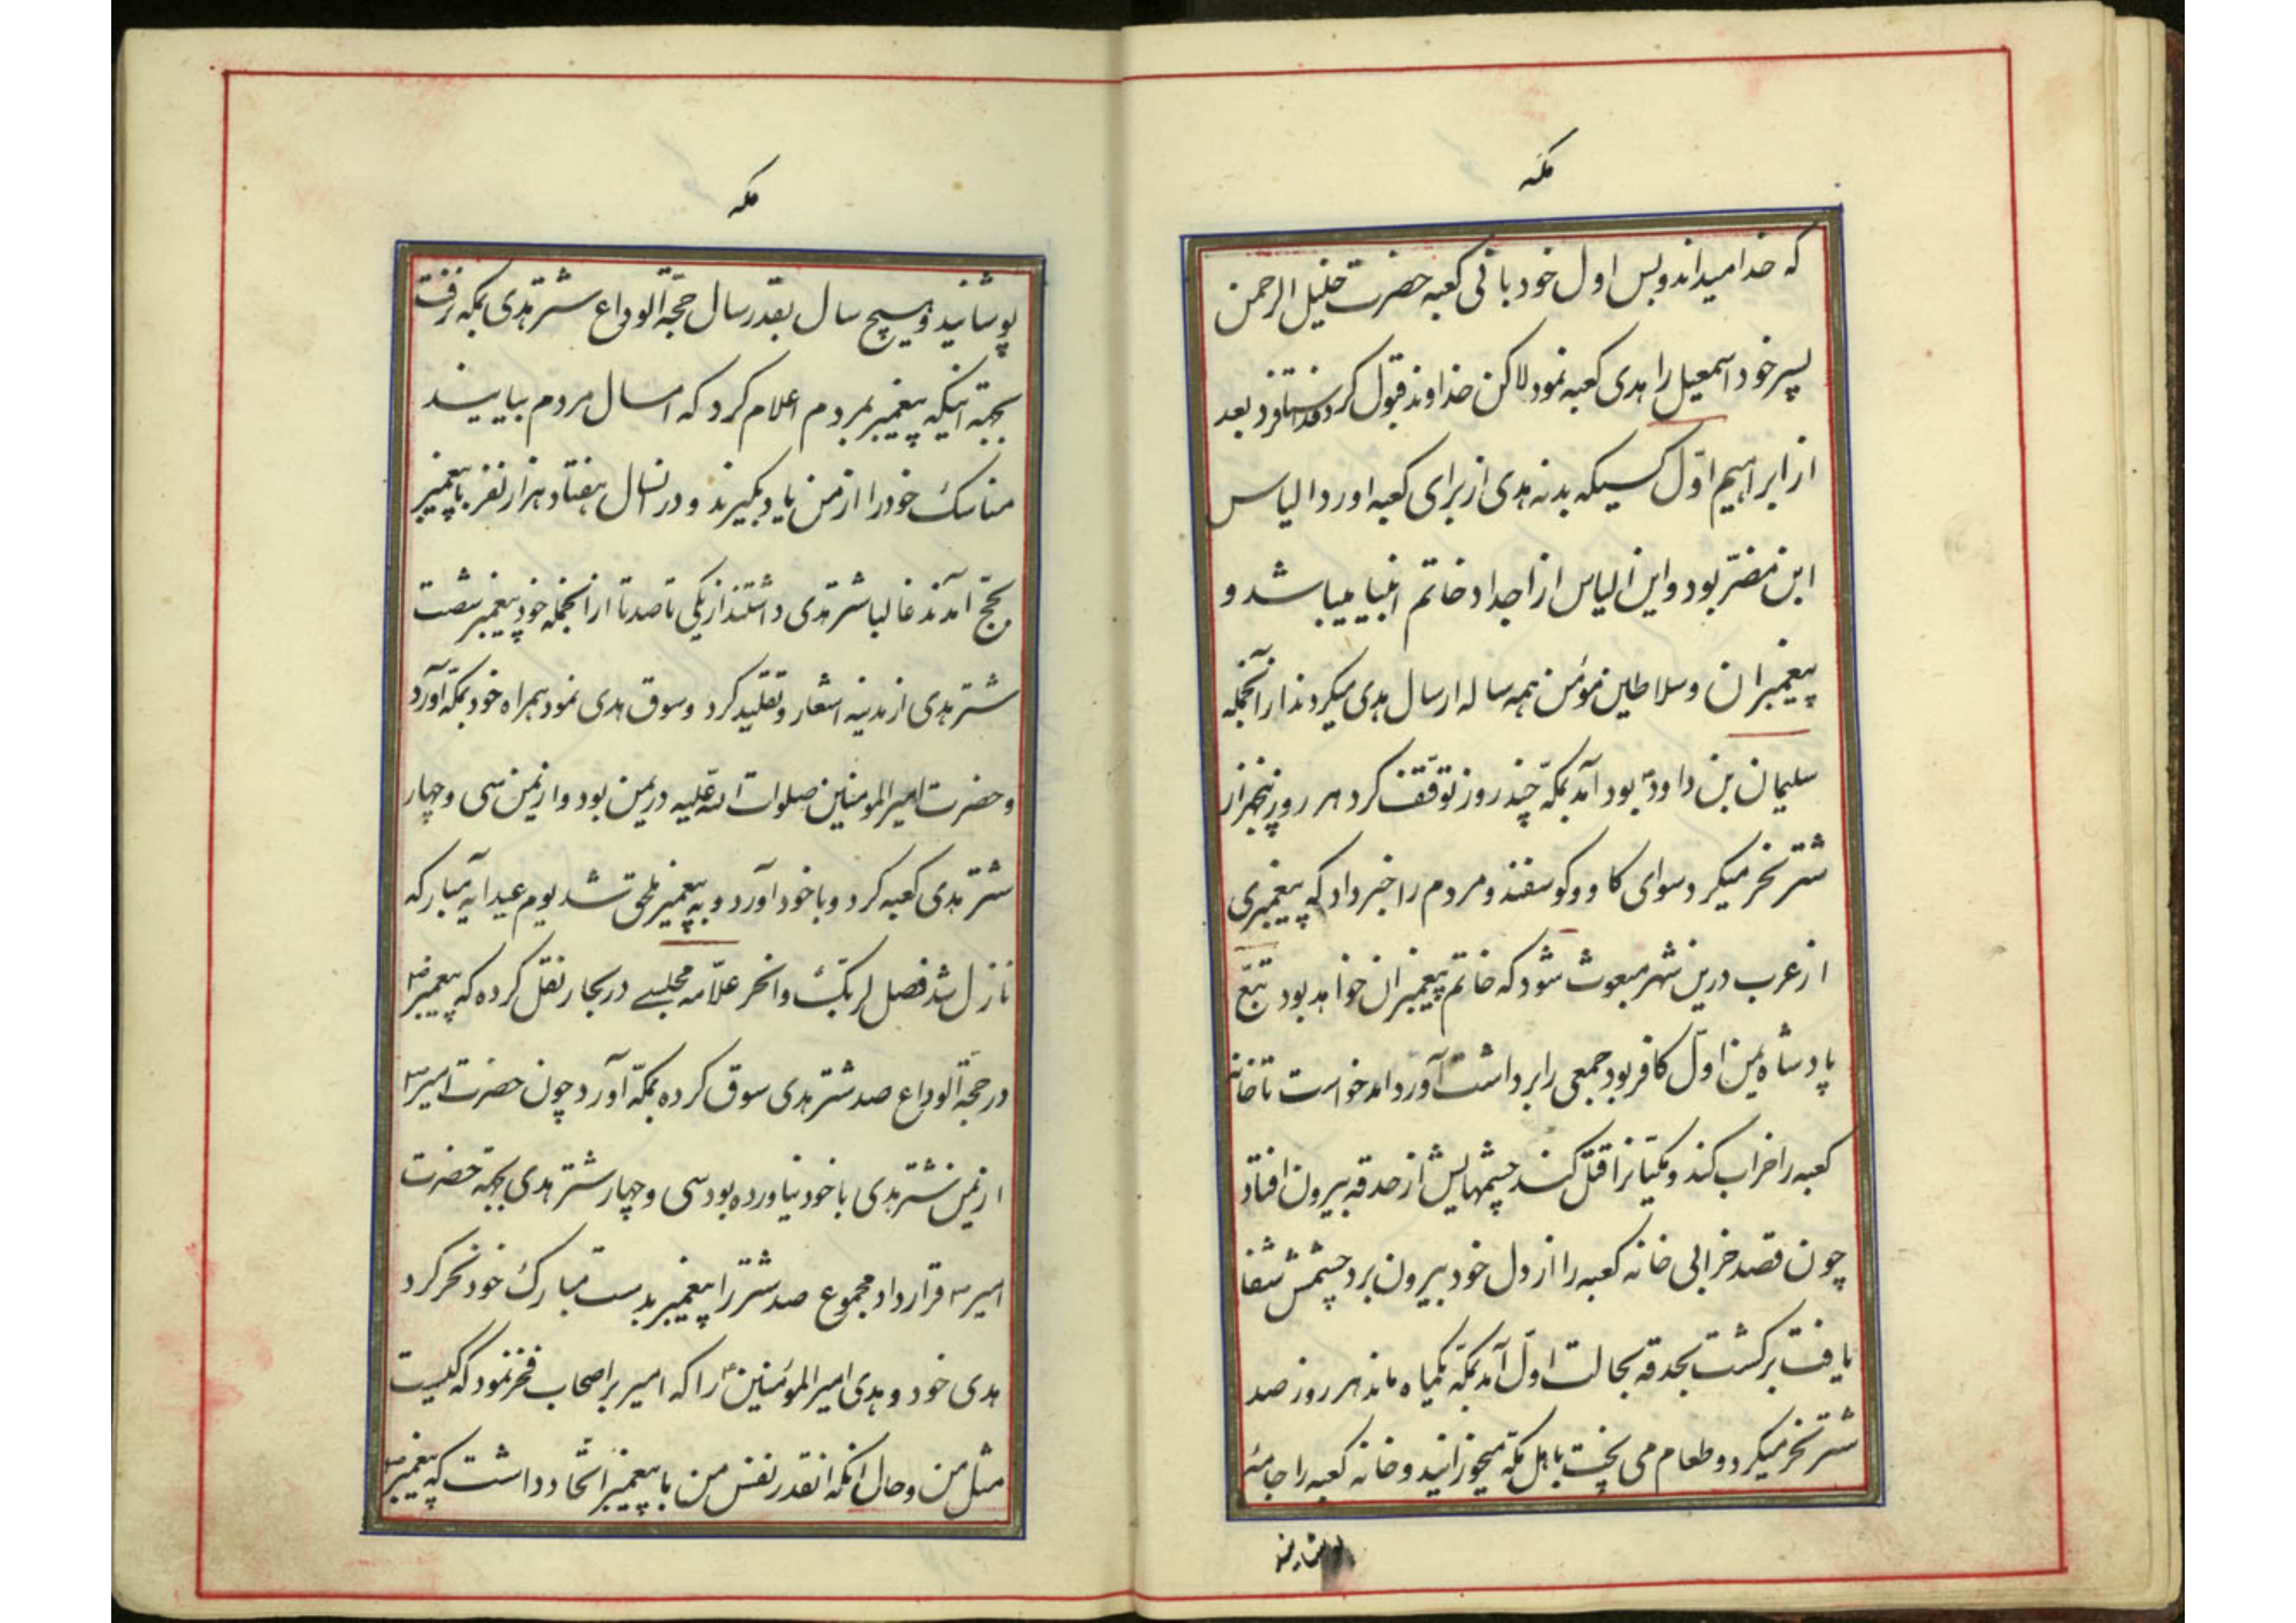 مکه
که خدا میداند و بس اول خود بانی کعبه حضرت خلیل الرحمن
پسر خود اسمعیل را هدی کعبه نمود لاکن خداوند قبول کرد فدا فرستاد بعد
از ابراهیم اوّل کسیکه بدنه هدی از برای کعبه اورد الیاس
ابن مضرّ بود و این الیاس از اجداد خاتم انبیا میباشد و
پیغمبران و سلاطین مؤمن همه ساله ارسال هدی میکردند از آنجمله
سلیمان بن داود بود آمد بمکّه چند روز توقّف کرد هر روز پنجهزار
شتر نحر میکرد سوای کاو و کوسفند و مردم را خبر داد که پیغمبری
از عرب درین شهر مبعوث شود که خاتم پیغمبران خواهد بود تبّع
پادشاه یمن اوّل کافر بود جمعی را برداشت آورد امد خواست تا خانه
کعبه را خراب کند و مکیانرا قتل کند چشمهایش از حدقه بیرون افتاد
چون قصد خرابی خانه کعبه را از دل خود بیرون برد چشمش شفا
یافت برکشت بحدقه بحالت اوّل آمد بمکّه یکماه ماند هر روز صد
شتر نحر میکرد و طعام می پخت باهل مکّه میخورانید و خانه کعبه را جامهٔ
پوشانید
مکه
پوشانید و هیچ سال بقدر سال حجّة الوداع شتر هدی بمکه نرفت
بجهة اینکه پیغمبر بمردم اعلام کرد که امسال مردم بیایند
مناسک خود را از من یاد بگیرند و در انسال هفتاد هزار نفر با پیغمبر
بحجّ آمدند غالبا شتر هدی داشتند از یکی تا صد تا از انجمله خود پیغمبر شصت
شتر هدی از مدینه اشعار و تقلید کرد و سوق هدی نمود همراه خود بمکّه آورد
و حضرت امیرالمومنین صلوات الله علیه در یمن بود و از یمن سی و چهار
شتر هدی کعبه کرد و با خود آورد و به پیغمبر ملحق شد یوم عید ایه مبارکه
نازل شد فصل لربک وانحر علّامه مجلسے در بحار نقل کرده که پیغمبر ص
در حجّة الوداع صد شتر هدی سوق کرده بمکّه آورد چون حضرت امیر ع
از یمن شتر هدی با خود نیاورده بود سی و چهار شتر هدی بجهة حضرت
امیر ع قرار داد مجموع صد شتر را پیغمبر بدست مبارک خود نحر کرد
هدی خود و هدی امیرالمؤمنین ع را که امیر بر اصحاب فخر نمود که کیست
مثل من و حال انکه انقدر نفس من با پیغمبر اتّحاد داشت که پیغمبر ص